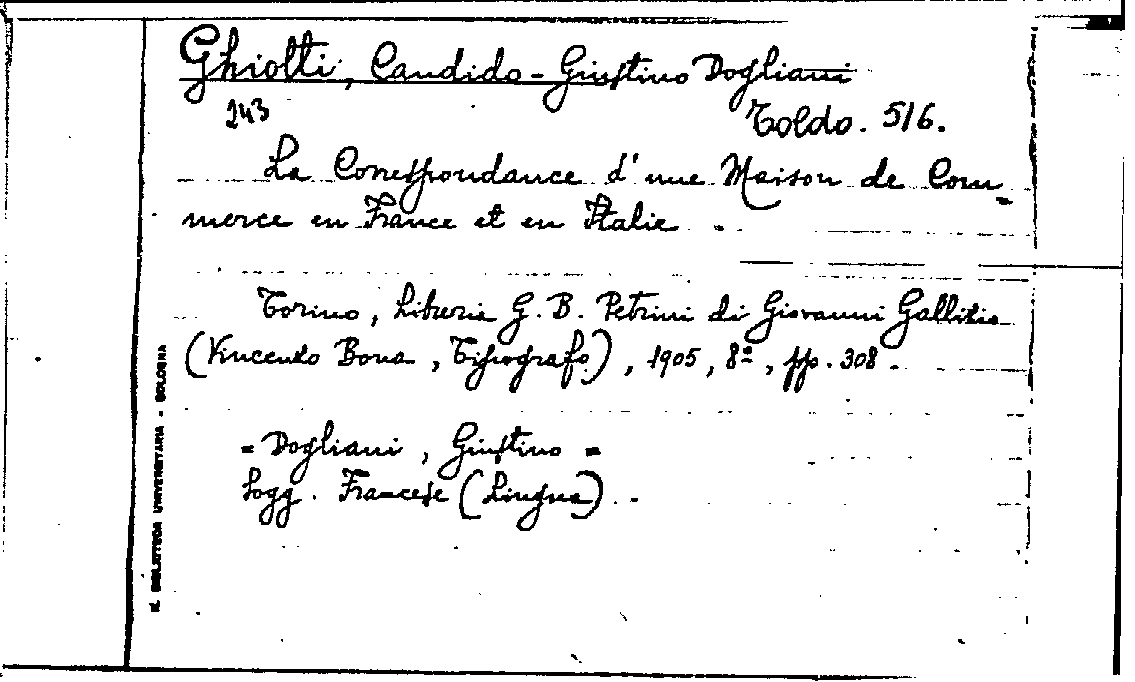 Ghiotti, Candido - Giustino Dogliani
243
Toldo. 516.
La Correspondance d'une Maison de Com-
merce en France et en Italie.
Torino, Libreria G. B. Petrini di Giovanni Gallizio
(Vincenzo Bona, Tipografo), 1905, 8º, pp. 308.
= Dogliani, Giustino =
Sogg. Francese (Lingua).
R. BIBLIOTECA UNIVERSITARIA - BOLOGNA